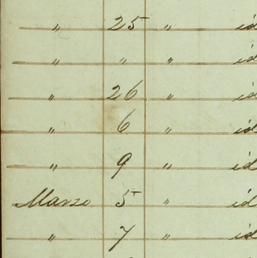 " 25 " id
" " " id
" 26 " id
" 6 " id
" 9 " id
Marzo 5 " id
" 7 " id